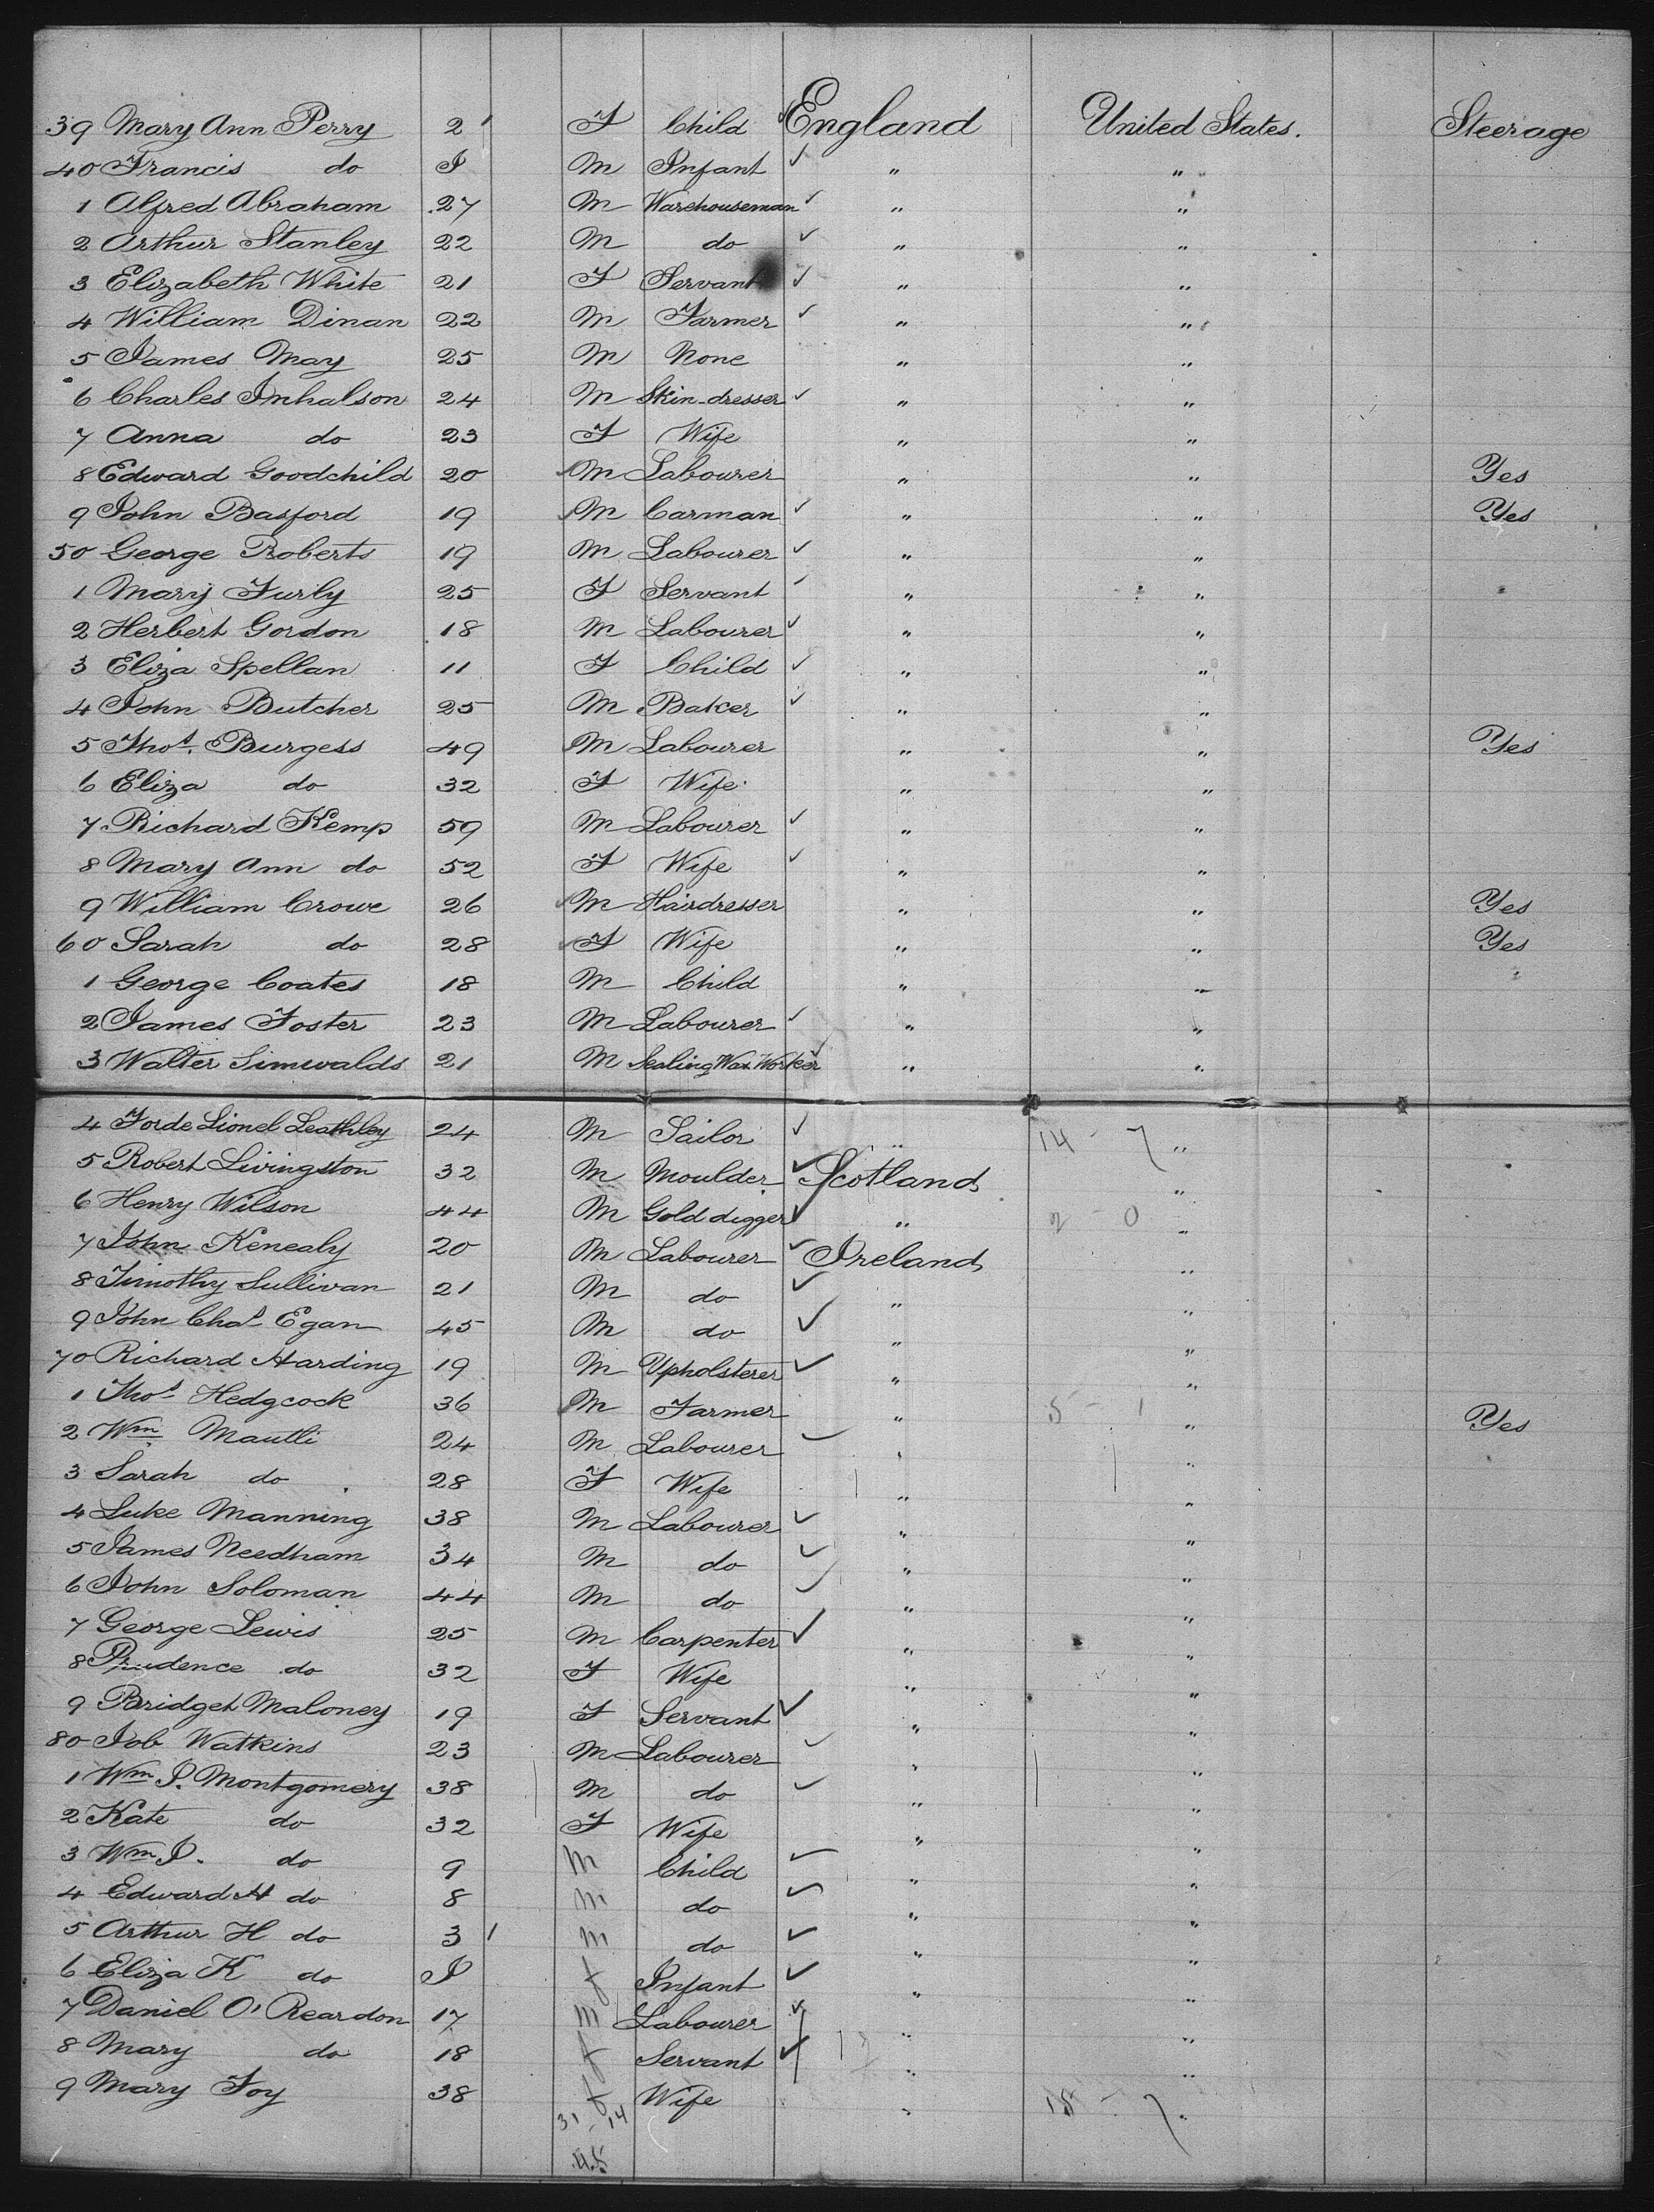 39 Mary Ann Perry 2 F Child England United States. Steerage
40 Francis do I M Infant " "
1 Alfred Abraham 27 M Warehouseman " "
2 Arthur Stanley 22 M do " "
3 Elizabeth White 21 F Servant " "
4 William Dinan 22 M Farmer " "
5 James May 25 M None " "
6 Charles Imhalson 24 M Skin-dresser " "
7 Anna do 23 F Wife " "
8 Edward Goodchild 20 M Labourer " " Yes
9 John Basford 19 M Carman " " Yes
50 George Roberts 19 M Labourer " "
1 Mary Furly 25 F Servant " "
2 Herbert Gordon 18 M Labourer " "
3 Eliza Spellan 11 F Child " "
4 John Butcher 25 M Baker " "
5 Thos. Burgess 49 M Labourer " " Yes
6 Eliza do 32 F Wife " "
7 Richard Kemp 59 M Labourer " "
8 Mary Ann do 52 F Wife " "
9 William Crowe 26 M Hairdresser " " Yes
60 Sarah do 28 F Wife " " Yes
1 George Coates 18 M Child " "
2 James Foster 23 M Labourer " "
3 Walter Simwalds 21 M Sealing Wax Worker " "
4 Forde Lionel Leathley 24 M Sailor " 14 - 7 "
5 Robert Livingston 32 M Moulder Scotland "
6 Henry Wilson 44 M Gold digger " 2 - 0 "
7 John Kenealy 20 M Labourer Ireland "
8 Timothy Sullivan 21 M do " "
9 John Chas Egan 45 M do " "
70 Richard Harding 19 M Upholsterer " "
1 Thos Hedgcock 36 M Farmer " 5 - 1 " Yes
2 Wm Mautli 24 M Labourer " "
3 Sarah do 28 F Wife " "
4 Luke Manning 38 M Labourer " "
5 James Needham 34 M do " "
6 John Soloman 44 M do " "
7 George Lewis 25 M Carpenter " "
8 Prudence do 32 F Wife " "
9 Bridget Maloney 19 F Servant " "
80 Job Watkins 23 M Labourer " "
1 Wm J. Montgomery 38 M do " "
2 Kate do 32 F Wife " "
3 Wm J. do 9 M Child " "
4 Edward H do 8 m do " "
5 Arthur H do 3 m do " "
6 Eliza K do I f Infant " "
7 Daniel O'Reardon 17 m Labourer " "
8 Mary do 18 f Servant " "
9 Mary Foy 38 f Wife " 18 - 7 "
31 - 14
45